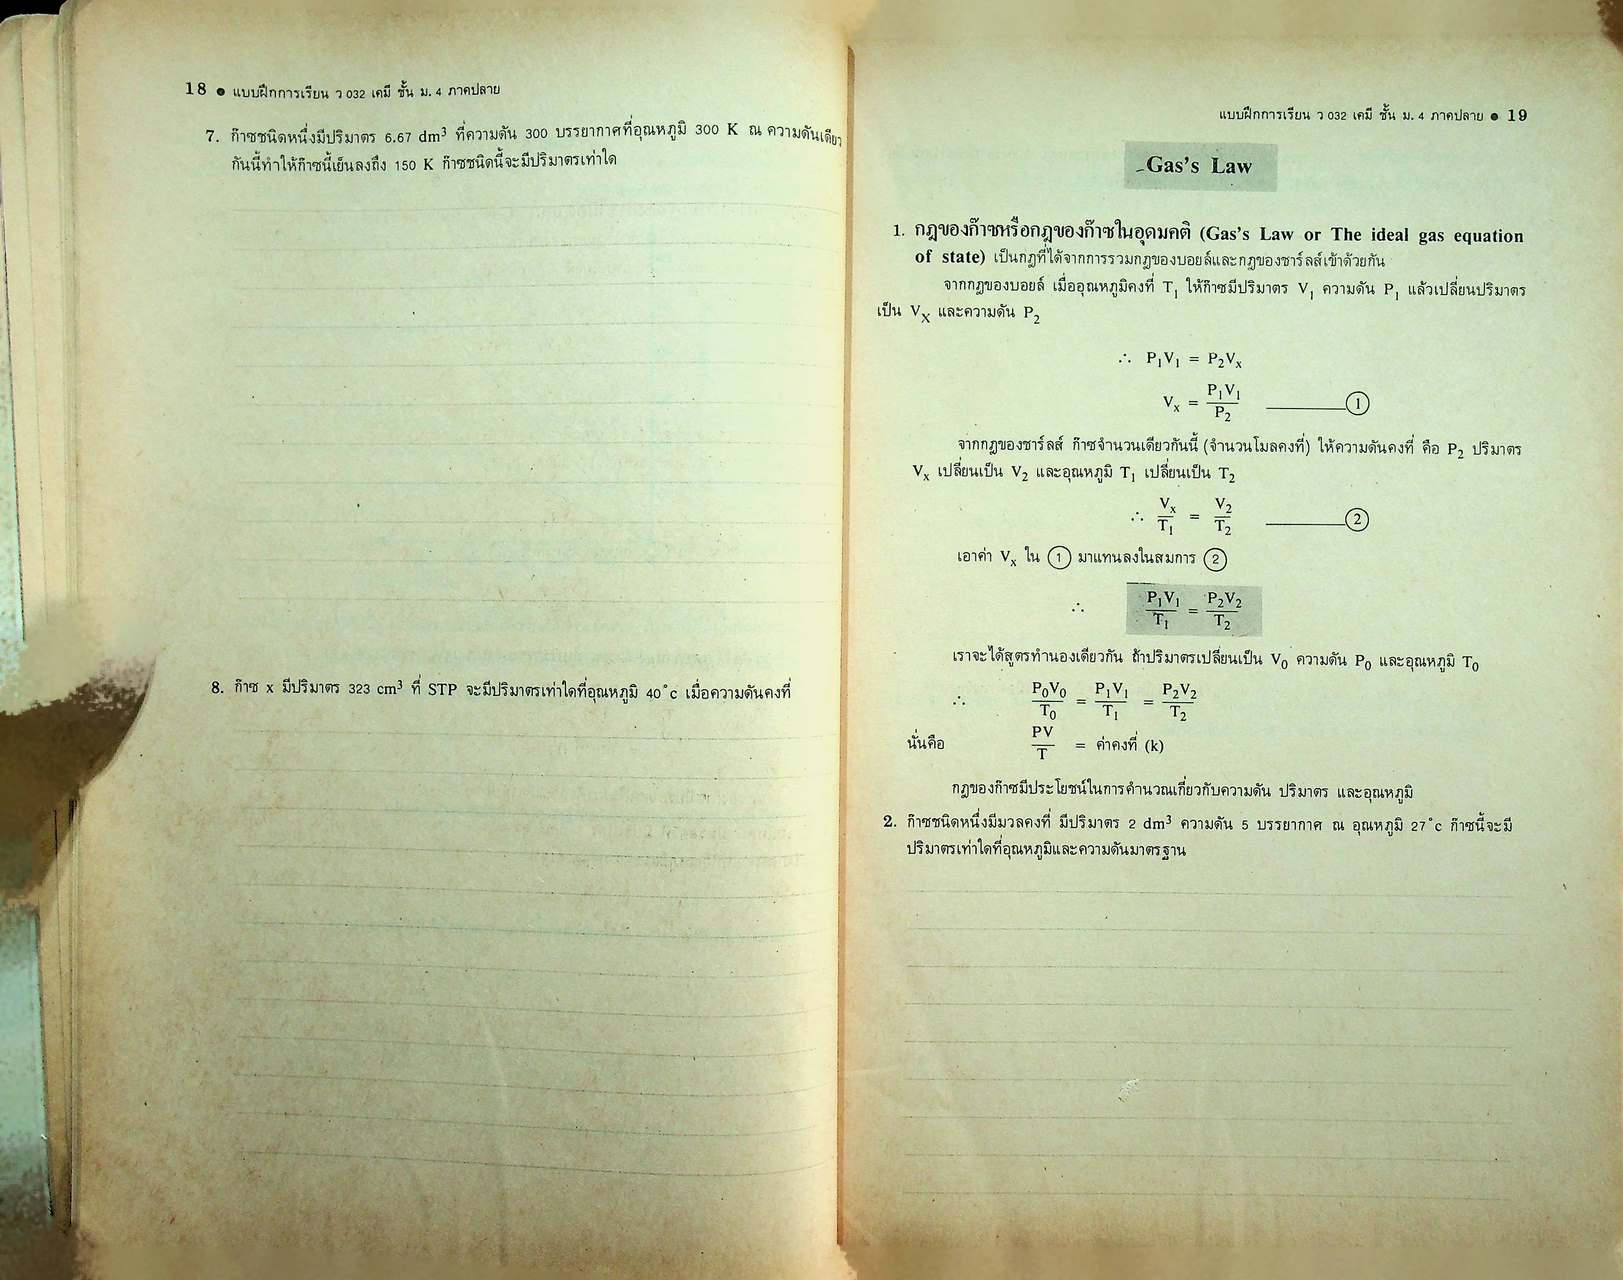 18 ● แบบฝึกการเรียน ว 032 เคมี ชั้น ม. 4 ภาคปลาย
7. ก๊าซชนิดหนึ่งมีปริมาตร 6.67 dm³ ที่ความดัน 300 บรรยากาศที่อุณหภูมิ 300 K ณ ความดันเดียว
กันนี้ทำให้ก๊าซนี้เย็นลงถึง 150 K ก๊าซชนิดนี้จะมีปริมาตรเท่าใด
8. ก๊าซ x มีปริมาตร 323 cm³ ที่ STP จะมีปริมาตรเท่าใดที่อุณหภูมิ 40°c เมื่อความดันคงที่
แบบฝึกการเรียน ว 032 เคมี ชั้น ม. 4 ภาคปลาย ● 19
Gas's Law
1. กฎของก๊าซหรือกฎของก๊าซในอุดมคติ (Gas's Law or The ideal gas equation
of state) เป็นกฎที่ได้จากการรวมกฎของบอยล์และกฎของชาร์ลส์เข้าด้วยกัน
จากกฎของบอยล์ เมื่ออุณหภูมิคงที่ T₁ ให้ก๊าซมีปริมาตร V₁ ความดัน P₁ แล้วเปลี่ยนปริมาตร
เป็น Vₓ และความดัน P₂
∴ P₁V₁ = P₂Vₓ
Vₓ = P₁V₁/P₂ ①
จากกฎของชาร์ลส์ ก๊าซจำนวนเดียวกันนี้ (จำนวนโมลคงที่) ให้ความดันคงที่ คือ P₂ ปริมาตร
Vₓ เปลี่ยนเป็น V₂ และอุณหภูมิ T₁ เปลี่ยนเป็น T₂
∴ Vₓ/T₁ = V₂/T₂ ②
เอาค่า Vₓ ใน ① มาแทนลงในสมการ ②
∴ P₁V₁/T₁ = P₂V₂/T₂
เราจะได้สูตรทำนองเดียวกัน ถ้าปริมาตรเปลี่ยนเป็น V₀ ความดัน P₀ และอุณหภูมิ T₀
∴ P₀V₀/T₀ = P₁V₁/T₁ = P₂V₂/T₂
นั่นคือ PV/T = ค่าคงที่ (k)
กฎของก๊าซมีประโยชน์ในการคำนวณเกี่ยวกับความดัน ปริมาตร และอุณหภูมิ
2. ก๊าซชนิดหนึ่งมีมวลคงที่ มีปริมาตร 2 dm³ ความดัน 5 บรรยากาศ ณ อุณหภูมิ 27°c ก๊าซนี้จะมี
ปริมาตรเท่าใดที่อุณหภูมิและความดันมาตรฐาน